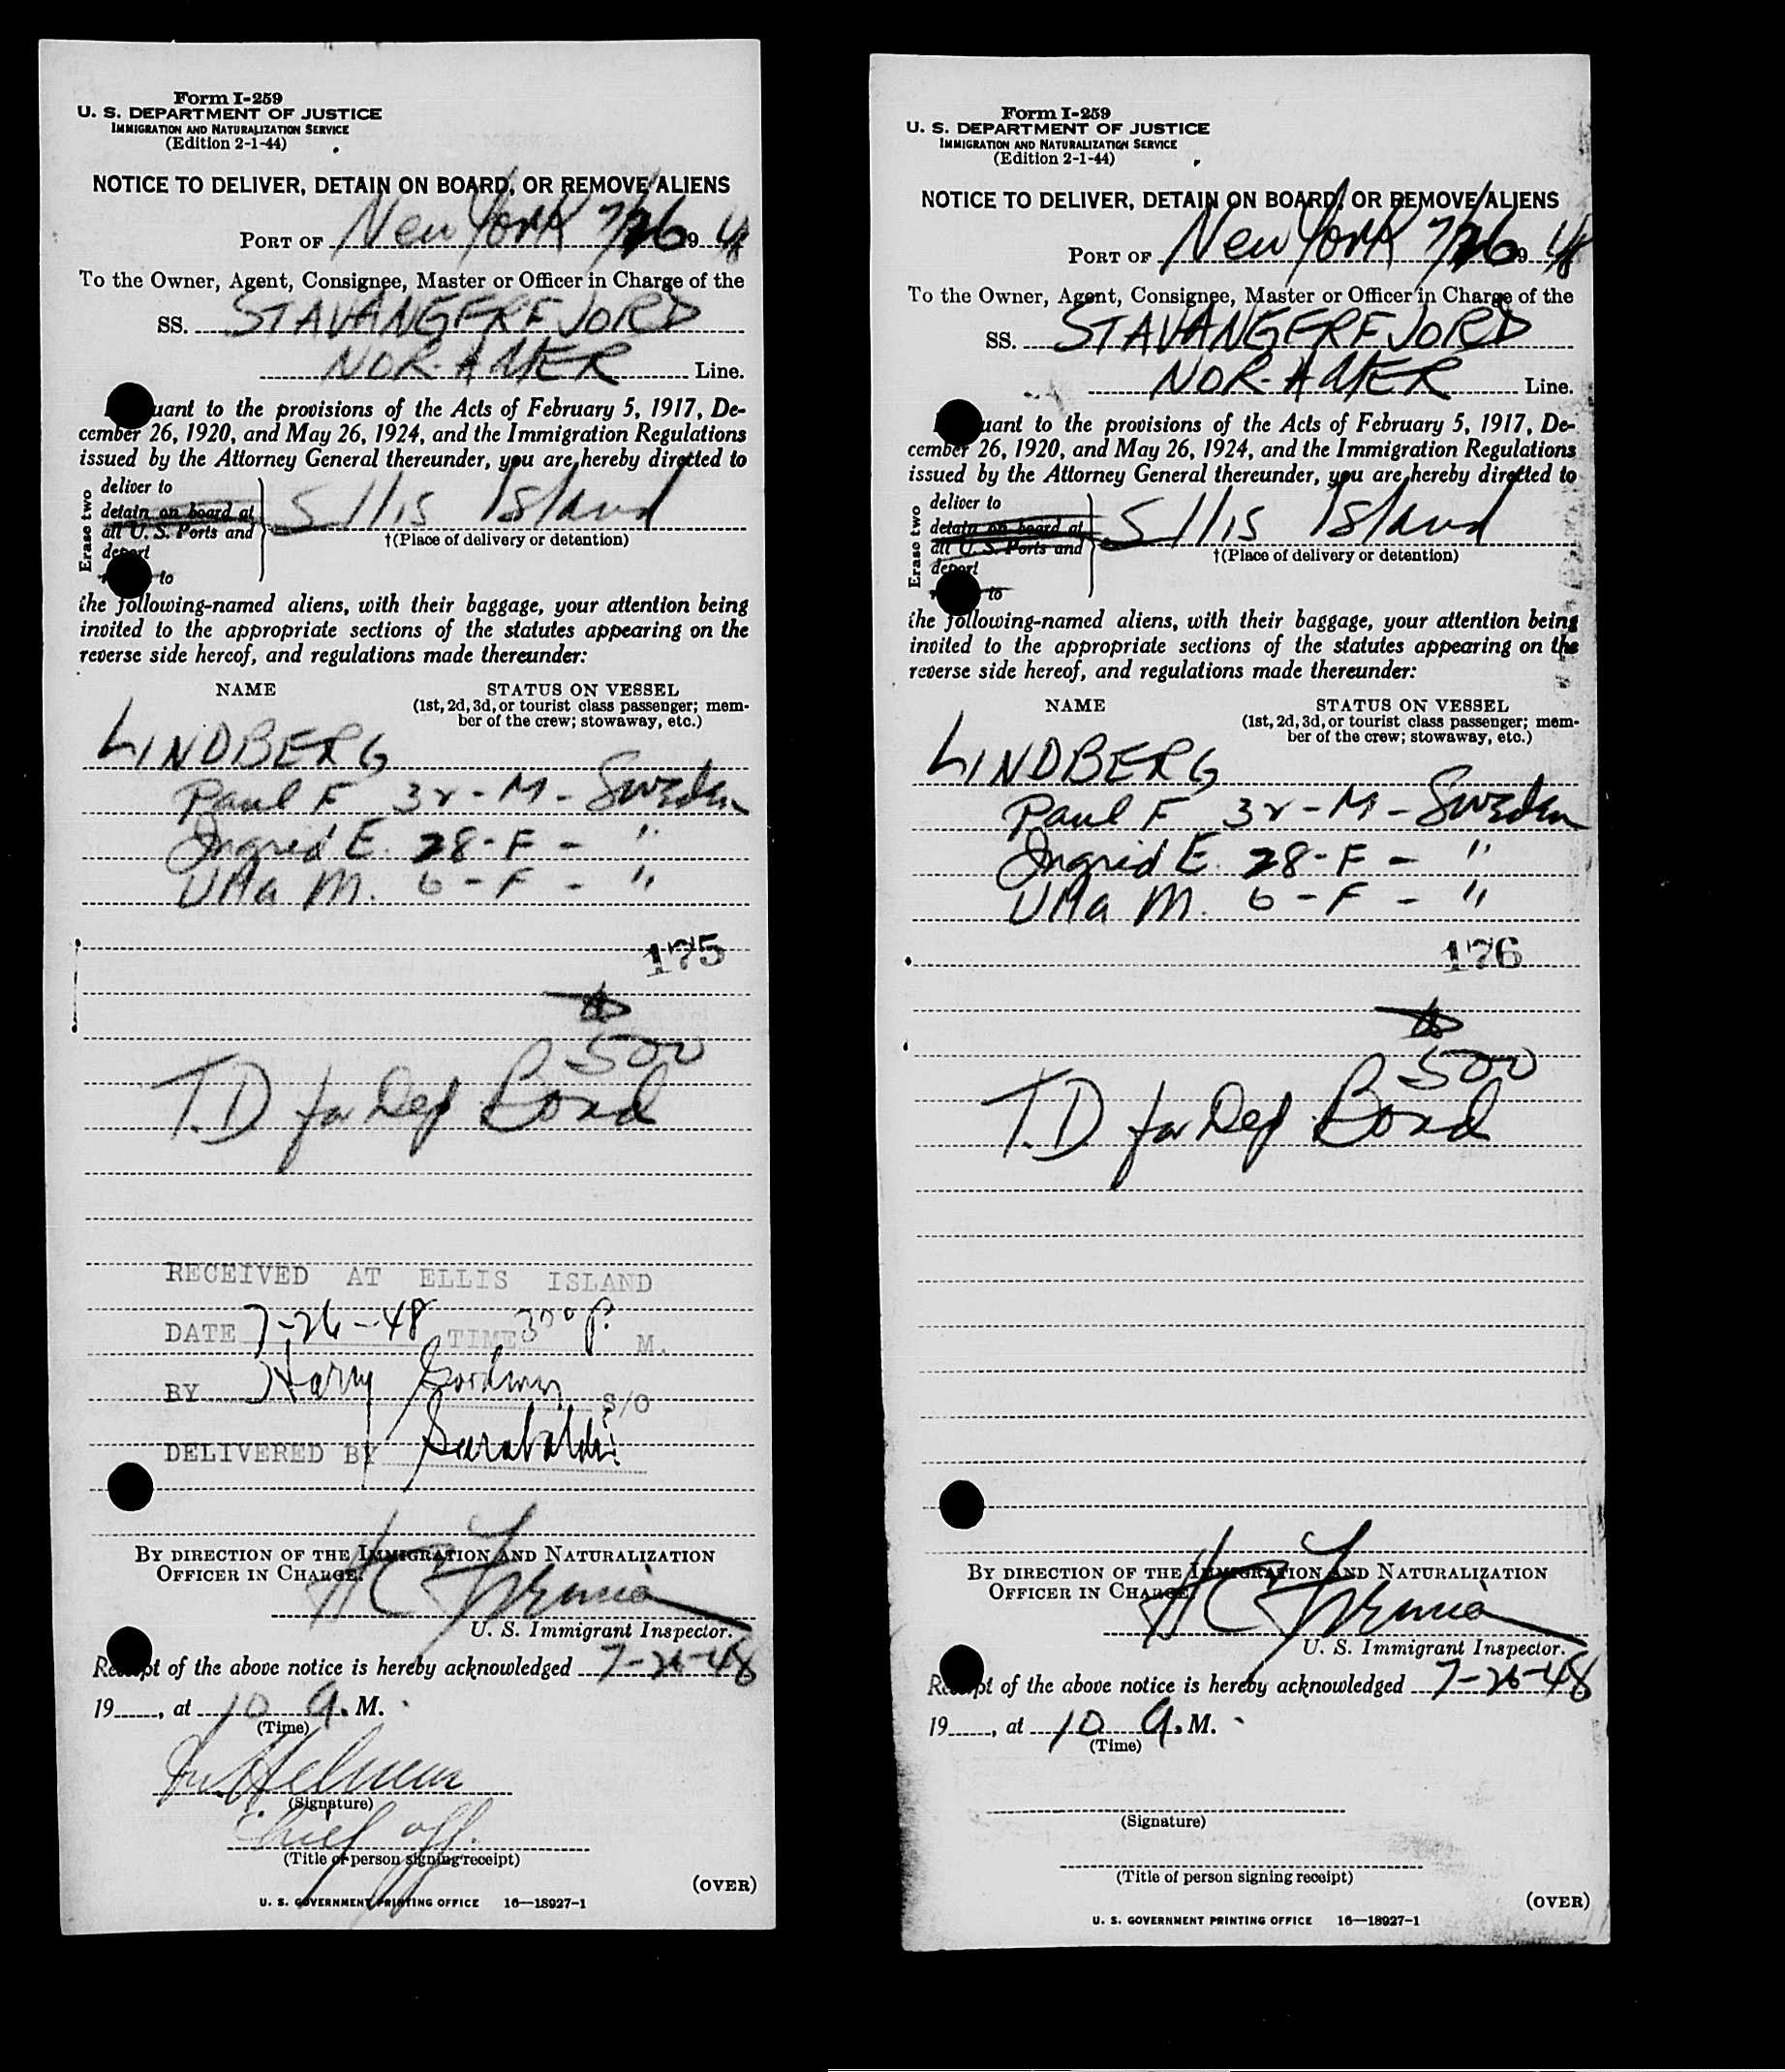 Form I-259
U. S. DEPARTMENT OF JUSTICE
IMMIGRATION AND NATURALIZATION SERVICE
(Edition 2-1-44)
NOTICE TO DELIVER, DETAIN ON BOARD, OR REMOVE ALIENS
PORT OF New York 7/26 19 48
To the Owner, Agent, Consignee, Master or Officer in Charge of the
SS. STAVANGERFJORD
NOR. AMER Line.
uant to the provisions of the Acts of February 5, 1917, De-
cember 26, 1920, and May 26, 1924, and the Immigration Regulations
issued by the Attorney General thereunder, you are hereby directed to
Erase two
deliver to
detain on board at
all U. S. Ports and
deport
to
Ellis Island
†(Place of delivery or detention)
the following-named aliens, with their baggage, your attention being
invited to the appropriate sections of the statutes appearing on the
reverse side hereof, and regulations made thereunder:
NAME STATUS ON VESSEL
(1st, 2d, 3d, or tourist class passenger; mem-
ber of the crew; stowaway, etc.)
LINDBERG
Paul F 32 - M - Sweden
Ingrid E. 28 - F - "
Ulla M. 6 - F - "
175
500
T.D for Dep Bond
RECEIVED AT ELLIS ISLAND
DATE 7-26-48 TIME 3 00 P. M.
BY Harry Goodman S/O
DELIVERED BY
BY DIRECTION OF THE IMMIGRATION AND NATURALIZATION
OFFICER IN CHARGE:
U. S. Immigrant Inspector.
Receipt of the above notice is hereby acknowledged 7-26-48
19 , at 10 A. M.
(Time)
(Signature)
Chief off.
(Title of person signing receipt)
(OVER)
U. S. GOVERNMENT PRINTING OFFICE 16—18927-1
Form I-259
U. S. DEPARTMENT OF JUSTICE
IMMIGRATION AND NATURALIZATION SERVICE
(Edition 2-1-44)
NOTICE TO DELIVER, DETAIN ON BOARD, OR REMOVE ALIENS
PORT OF New York 7/26 19 48
To the Owner, Agent, Consignee, Master or Officer in Charge of the
SS. STAVANGERFJORD
NOR. AMER Line.
uant to the provisions of the Acts of February 5, 1917, De-
cember 26, 1920, and May 26, 1924, and the Immigration Regulations
issued by the Attorney General thereunder, you are hereby directed to
Erase two
deliver to
detain on board at
all U. S. Ports and
deport
to
Ellis Island
†(Place of delivery or detention)
the following-named aliens, with their baggage, your attention being
invited to the appropriate sections of the statutes appearing on the
reverse side hereof, and regulations made thereunder:
NAME STATUS ON VESSEL
(1st, 2d, 3d, or tourist class passenger; mem-
ber of the crew; stowaway, etc.)
LINDBERG
Paul F 32 - M - Sweden
Ingrid E. 28 - F - "
Ulla M. 6 - F - "
176
500
T.D for Dep Bond
BY DIRECTION OF THE IMMIGRATION AND NATURALIZATION
OFFICER IN CHARGE:
U. S. Immigrant Inspector.
Receipt of the above notice is hereby acknowledged 7-26-48
19 , at 10 A. M.
(Time)
(Signature)
(Title of person signing receipt)
(OVER)
U. S. GOVERNMENT PRINTING OFFICE 16—18927-1